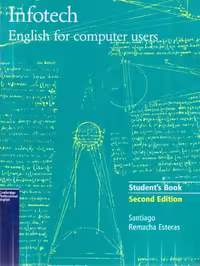 Infotech
English for computer users
Student's Book
Second Edition
Santiago
Remacha Esteras
Cambridge
Professional
English